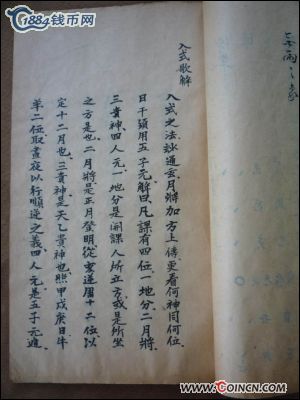 1884钱币网
入式歌解
入式之法妙通玄月將加方上傳更看何神同何位
日干須用五子元解曰凡課有四位一地分二月將
三貴神四人元一地分是開課人所立方或是所坐
之方是也二月將是正月登明從亥逆届十二位以
定十二月也三貴神是天乙貴神也照甲戊庚日牛
羊二位取晝夜以行順逆之義四人元是五子元遁
WWW.COINCN.COM